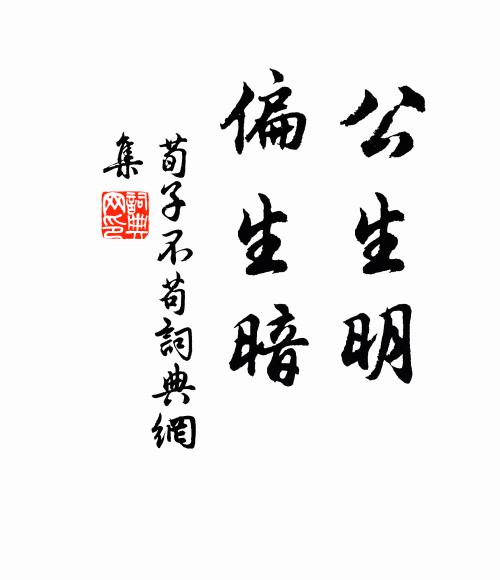 公生明
偏生暗
荀子不苟詞典網
集
詞典
网印